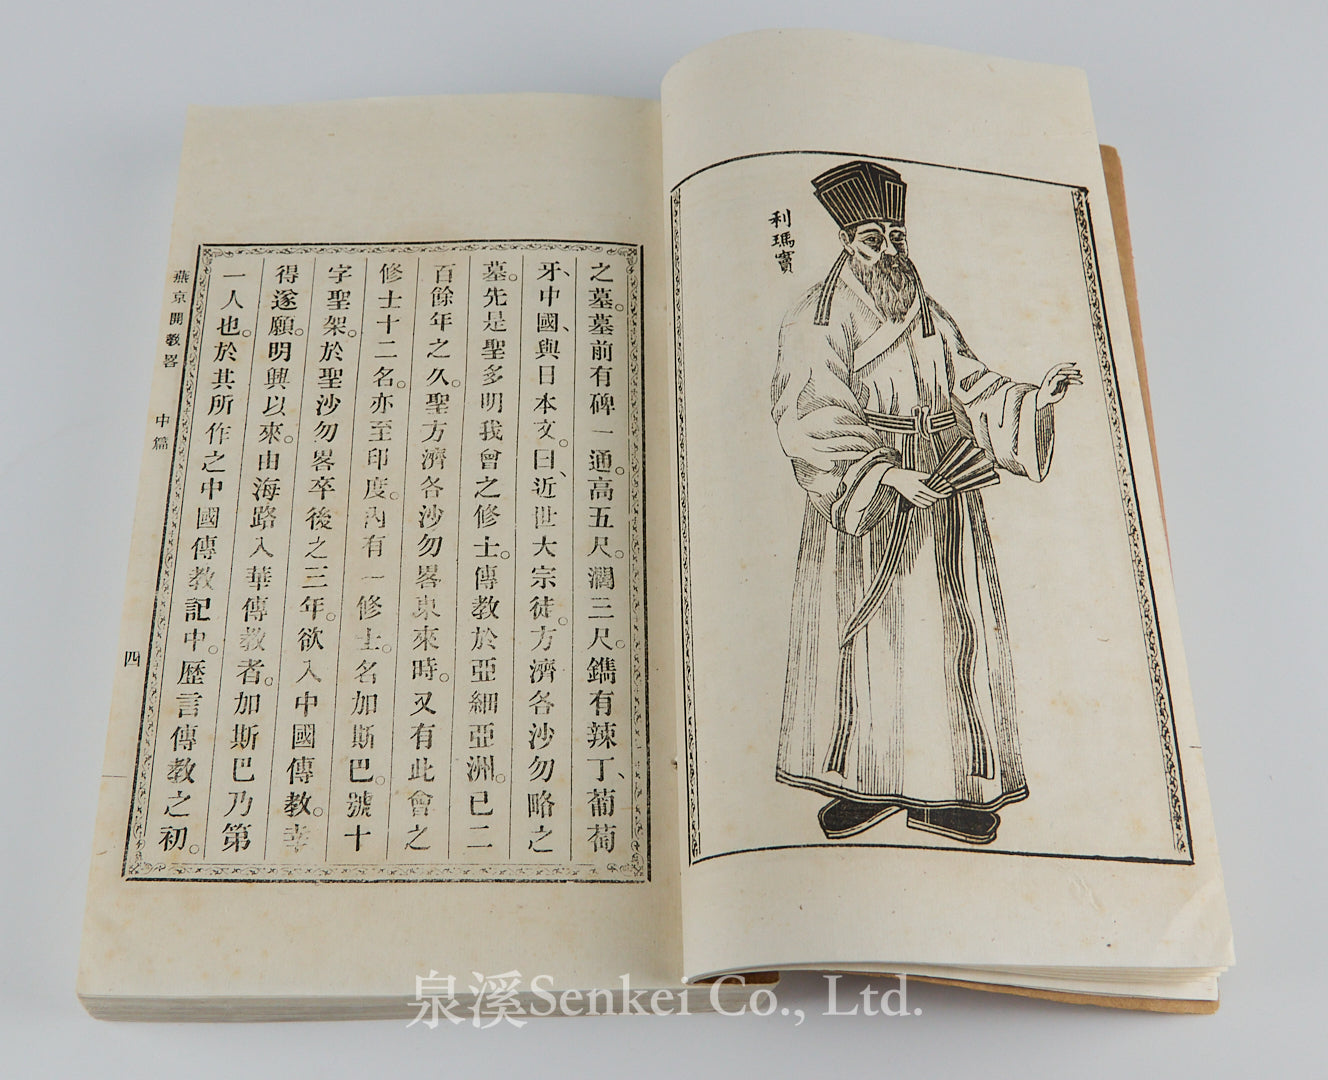 利瑪竇
之墓。墓前有碑一通。高五尺。濶三尺。鐫有辣丁、葡萄
牙、中國、與日本文。曰、近世大宗徒。方濟各沙勿略之
墓。先是聖多明我會之修士。傳教於亞細亞洲。已二
百餘年之久。聖方濟各沙勿畧東來時。又有此會之
修士十二名。亦至印度。內有一修士。名加斯巴。號十
字聖架。於聖沙勿畧卒後之三年。欲入中國傳教。幸
得遂願。明興以來。由海路入華傳教者。加斯巴乃第
一人也。於其所作之中國傳教記中。歷言傳教之初。
燕京開教畧
中篇
四
泉溪Senkei Co., Ltd.